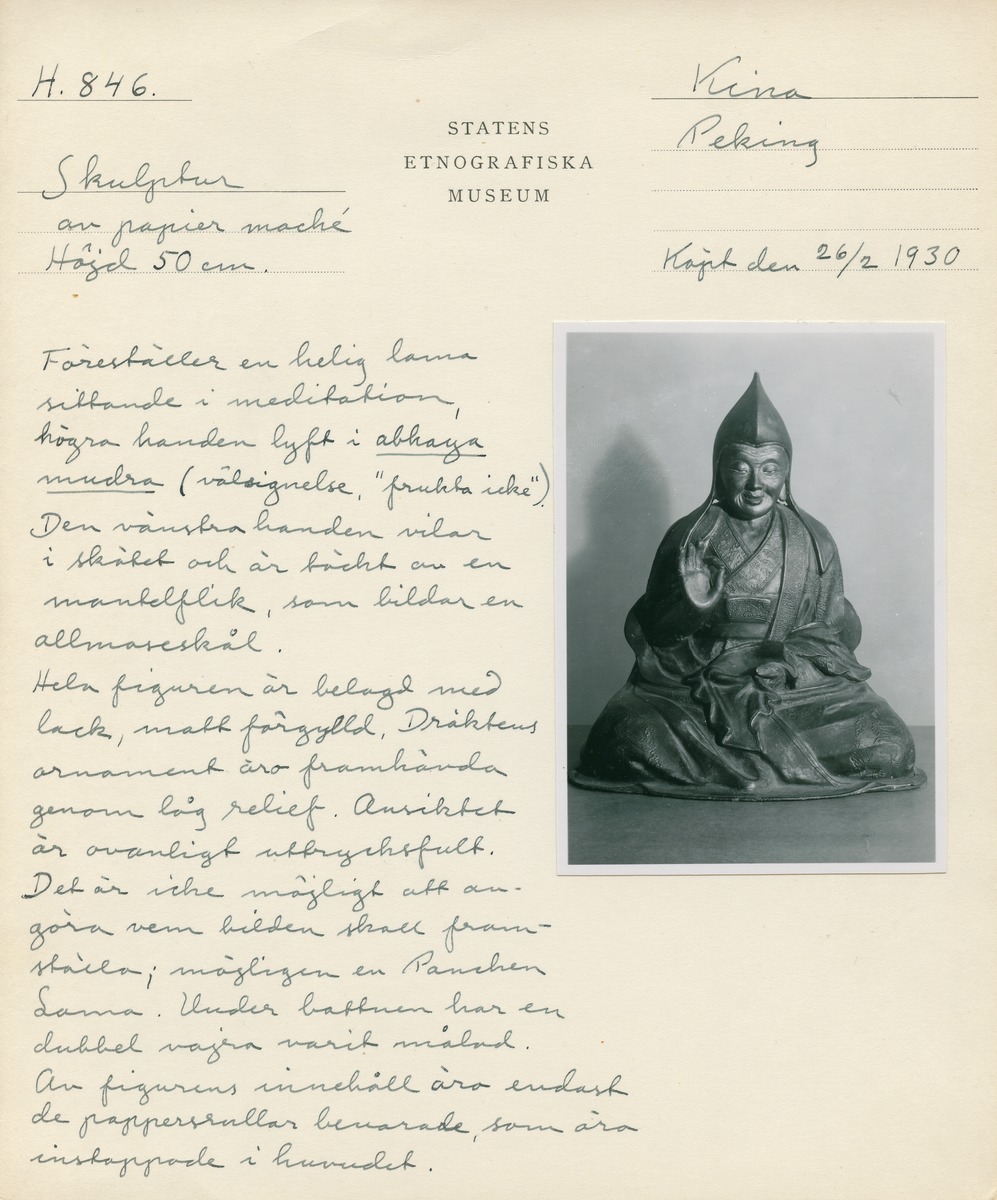 H. 846.
Skulptur
av papier maché
Höjd 50 cm.
STATENS
ETNOGRAFISKA
MUSEUM
Kina
Peking
Köpt den 26/2 1930
Föreställer en helig lama
sittande i meditation,
högra handen lyft i abhaya
mudra (välsignelse, "frukta icke").
Den vänstra handen vilar
i skötet och är täckt av en
mantelflik, som bildar en
allmoseskål.
Hela figuren är belagd med
lack, matt förgylld. Dräktens
ornament äro framhävda
genom låg relief. Ansiktet
är ovanligt uttrycksfullt.
Det är icke möjligt att an-
göra vem bilden skall fram-
ställa; möjligen en Panchen
Lama. Under bottnen har en
dubbel vajra varit målad.
Av figurens innehåll äro endast
de pappersrullar bevarade, som äro
instoppade i huvudet.